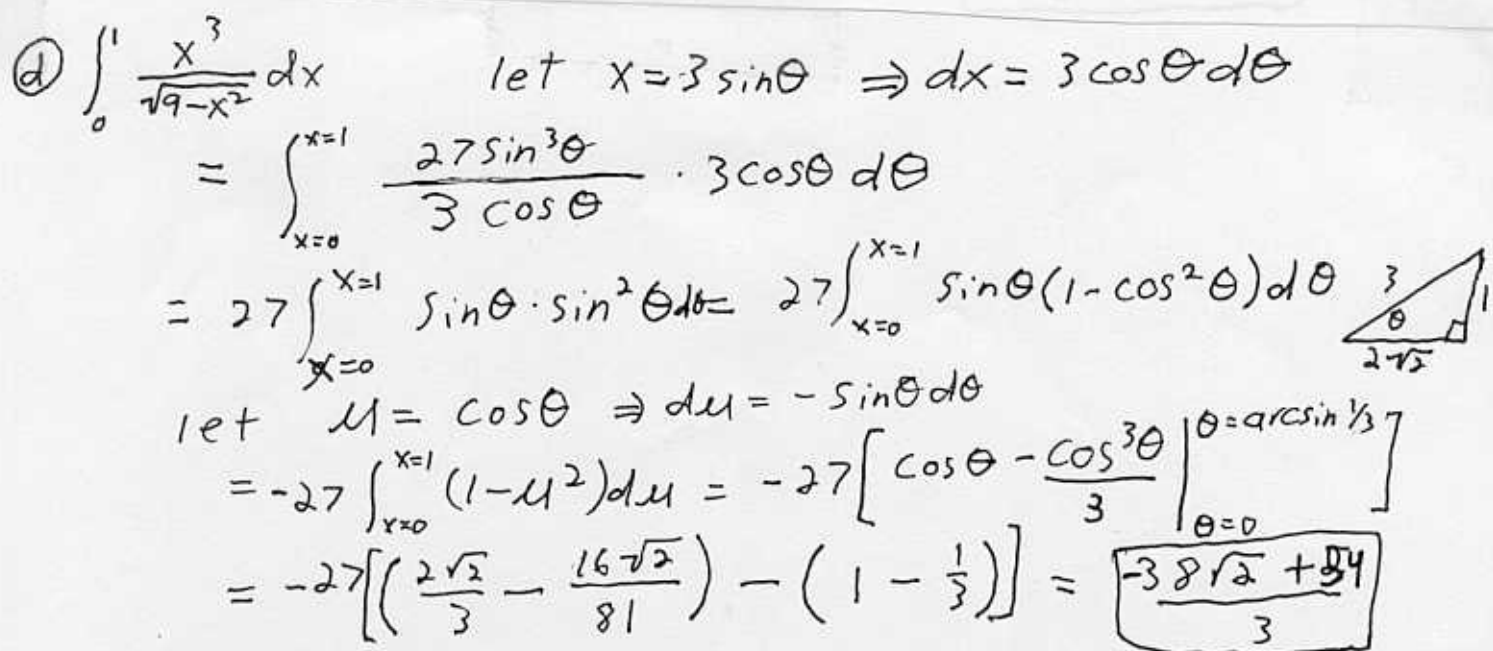 ⓓ ∫₀¹ x³/√(9-x²) dx let x = 3 sinθ ⇒ dx = 3 cosθ dθ
= ∫_{x=0}^{x=1} (27 sin³θ)/(3 cosθ) · 3 cosθ dθ
= 27 ∫_{x=0}^{x=1} sinθ · sin²θ dθ = 27 ∫_{x=0}^{x=1} sinθ(1 - cos²θ) dθ 3 θ 1 2√2
let u = cosθ ⇒ du = - sinθ dθ
= -27 ∫_{x=0}^{x=1} (1 - u²) du = -27 [cosθ - cos³θ/3 |_{θ=0}^{θ=arcsin 1/3}]
= -27 [(2√2/3 - 16√2/81) - (1 - 1/3)] = (-38√2 + 54)/3